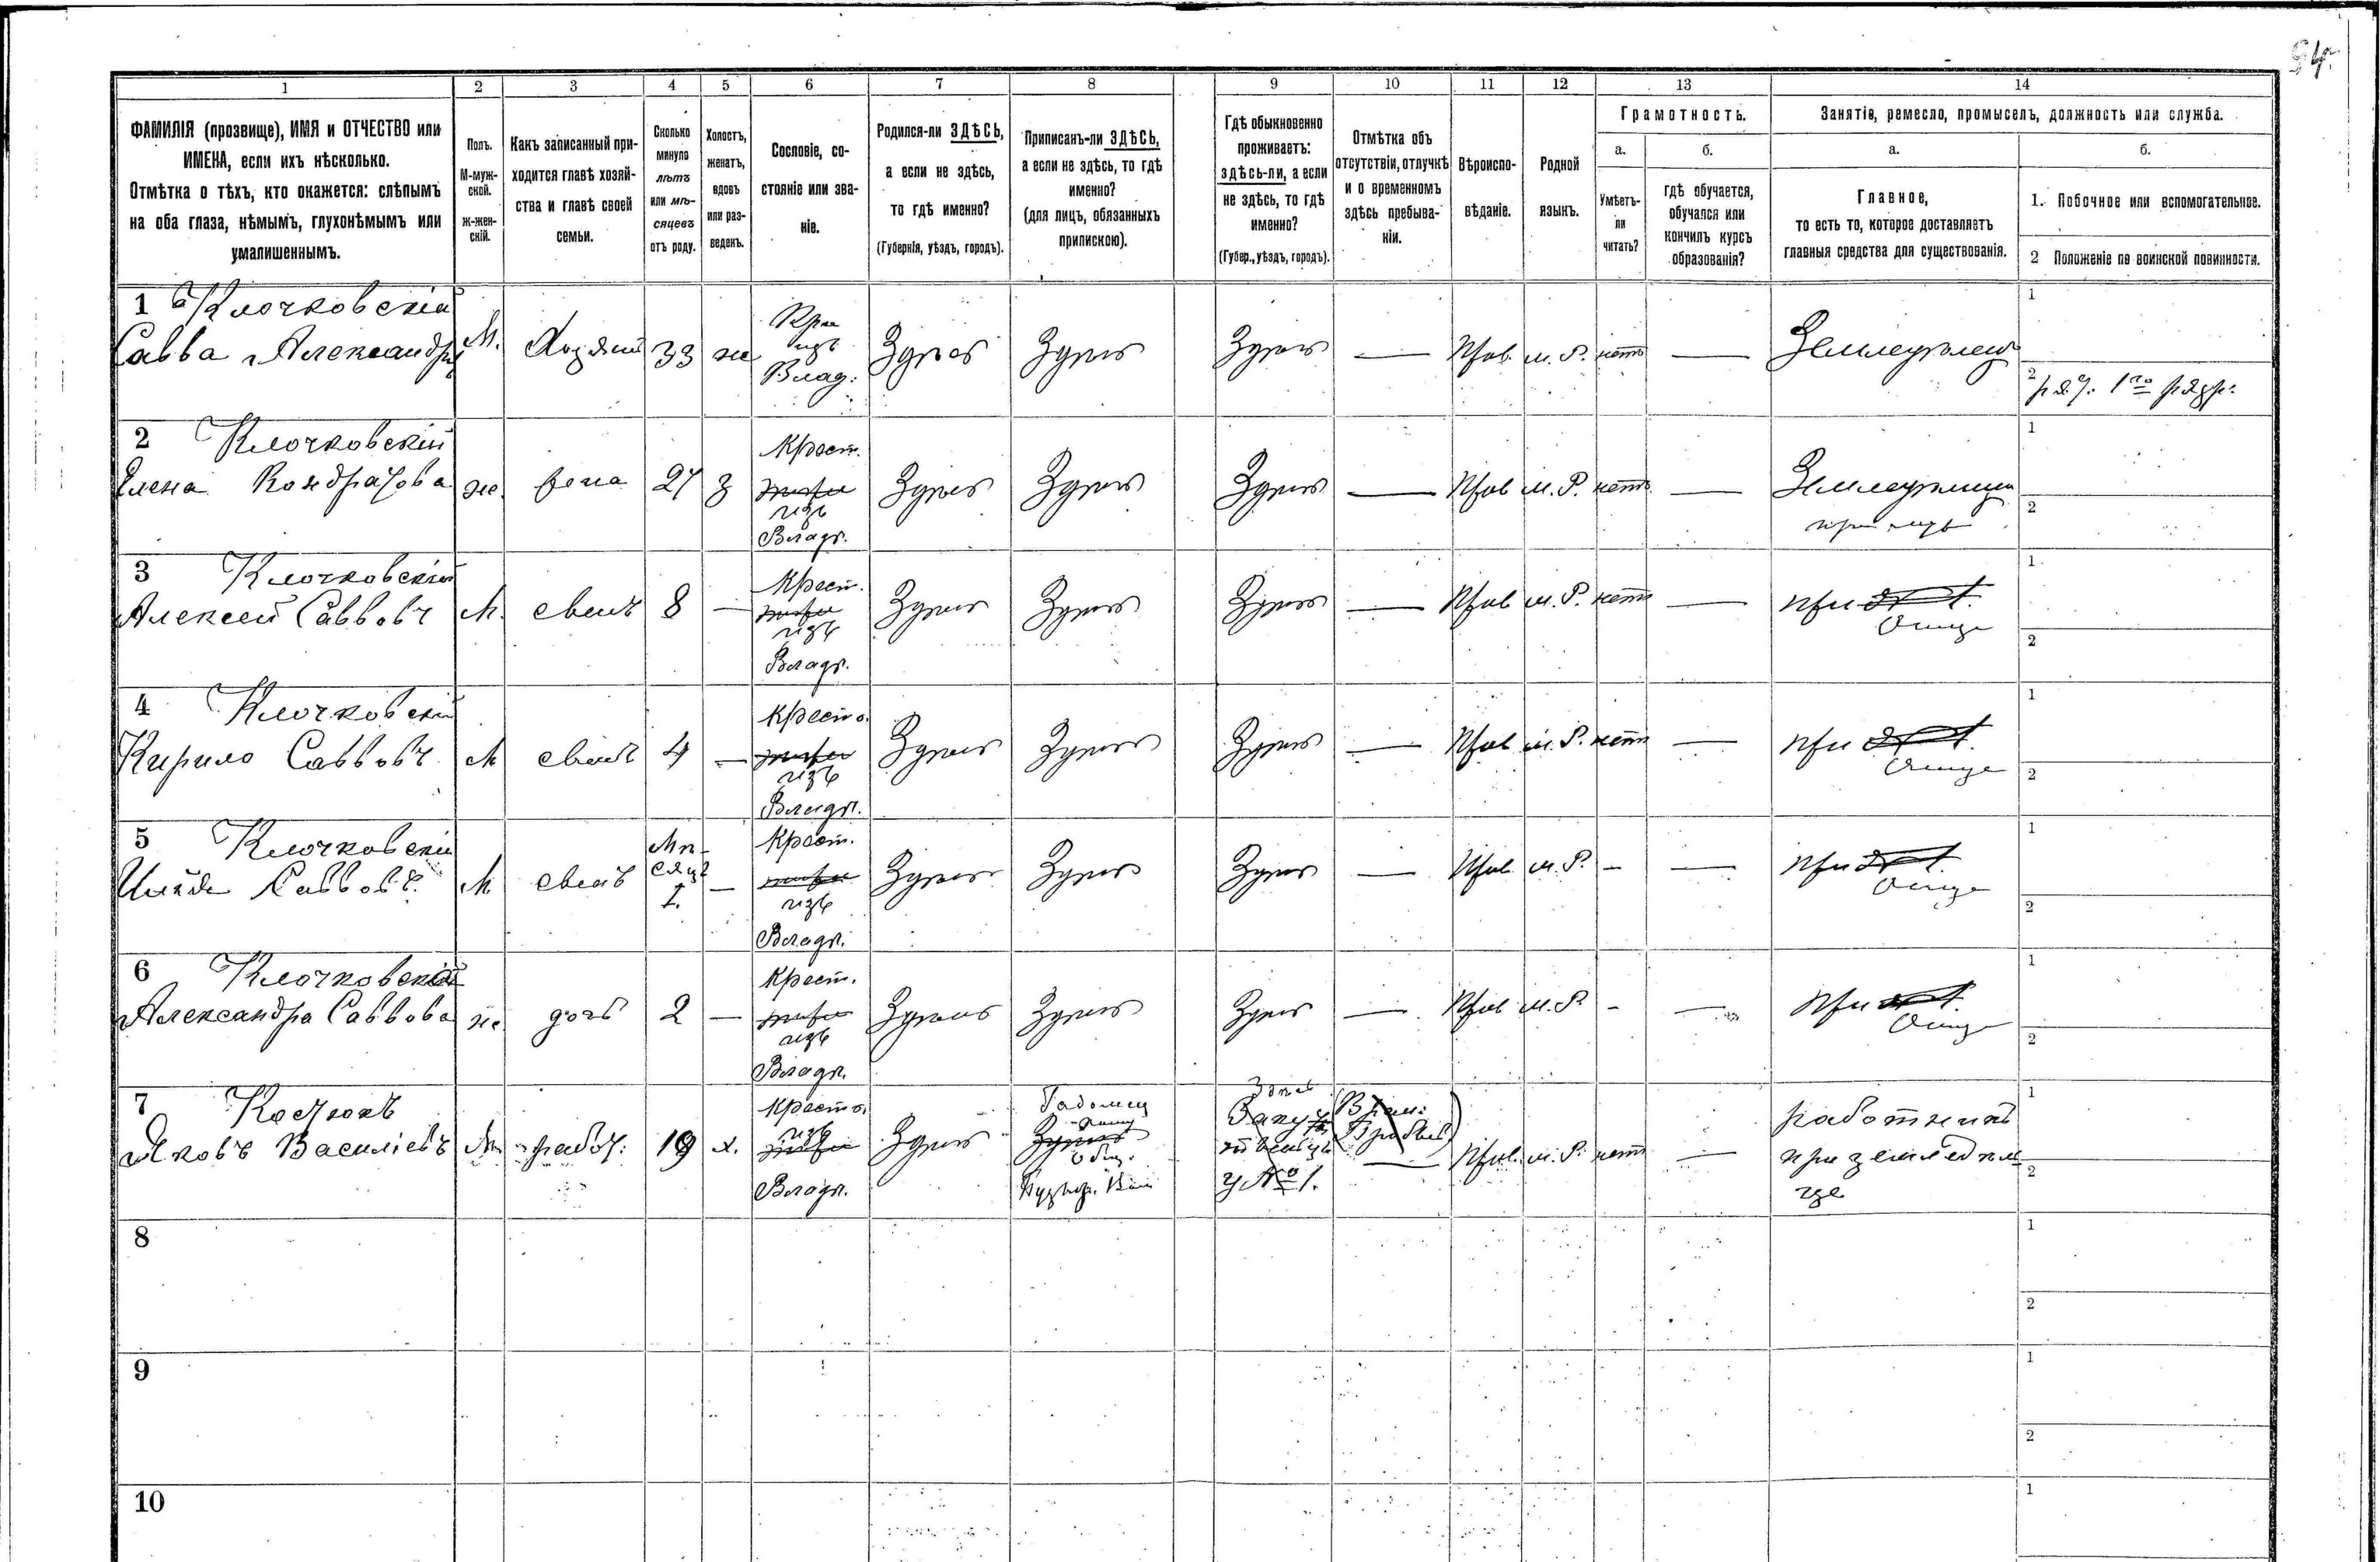 94.
1 2 3 4 5 6 7 8 9 10 11 12 13 14
ФАМИЛІЯ (прозвище), ИМЯ и ОТЧЕСТВО или
ИМЕНА, если ихъ нѣсколько.
Отмѣтка о тѣхъ, кто окажется: слѣпымъ
на оба глаза, нѣмымъ, глухонѣмымъ или
умалишеннымъ.
Полъ.
М-муж-
ской.
ж-жен-
скій.
Какъ записанный при-
ходится главѣ хозяй-
ства и главѣ своей
семьи.
Сколько
минуло
лѣтъ
или мѣ-
сяцевъ
отъ роду.
Холостъ,
женатъ,
вдовъ
или раз-
веденъ.
Сословіе, со-
стояніе или зва-
ніе.
Родился-ли ЗДѢСЬ,
а если не здѣсь,
то гдѣ именно?
(Губернія, уѣздъ, городъ).
Приписанъ-ли ЗДѢСЬ,
а если не здѣсь, то гдѣ
именно?
(для лицъ, обязанныхъ
припискою).
Гдѣ обыкновенно
проживаетъ:
здѣсь-ли, а если
не здѣсь, то гдѣ
именно?
(Губер., уѣздъ, городъ).
Отмѣтка объ
отсутствіи, отлучкѣ
и о временномъ
здѣсь пребыва-
ніи.
Вѣроиспо-
вѣданіе.
Родной
языкъ.
Грамотность.
а.
Умѣетъ-
ли
читать?
б.
гдѣ обучается,
обучался или
кончилъ курсъ
образованія?
Занятіе, ремесло, промыселъ, должность или служба.
а.
Главное,
то есть то, которое доставляетъ
главныя средства для существованія.
б.
1. Побочное или вспомогательное.
2 Положеніе по воинской повинности.
1 Клочковскій
Савва Александр
М. Хозяин 33 ж Кре изъ Влад. Здѣсь Здѣсь Здѣсь — Прав. м. Р. нетъ — Земледелец
1
2 1го разр.
2 Клочковскій
Елена Кондратова
же. жена 27 з Крест. изъ Владѣ. Здѣсь Здѣсь Здѣсь — Прав м. Р. нетъ —
1
2
3 Клочковскій
Алексей Саввовъ
М. сынъ 8 — Крест. изъ Владѣ. Здѣсь Здѣсь Здѣсь — Прав м. Р. нетъ — при Отце
1
2
4 Клочковскій
Кирило Саввовъ
М сынъ 4 — Кресто. изъ Владѣ. Здѣсь Здѣсь Здѣсь — Прав м. Р. нетъ — при Отце
1
2
5 Клочковскій
Саввовъ
М сынъ Мѣ-
сяцъ
1. — Крест. изъ Владѣ. Здѣсь Здѣсь Здѣсь — Прав м. Р. - — при Отце
1
2
6 Клочковская
Александра Саввова
же. дочь 2 — Крест. изъ Владѣ. Здѣсь Здѣсь Здѣсь — Прав м. Р. - — при Отце
1
2
7 Костюкъ
Яковъ Василіевъ
М работ. 19 х. Кресто. изъ Владѣ. Здѣсь Здѣсь у № 1. — Прав. м. Р. нетъ —
работникъ
при земледѣл
1
2
8
1
2
9
1
2
10
1